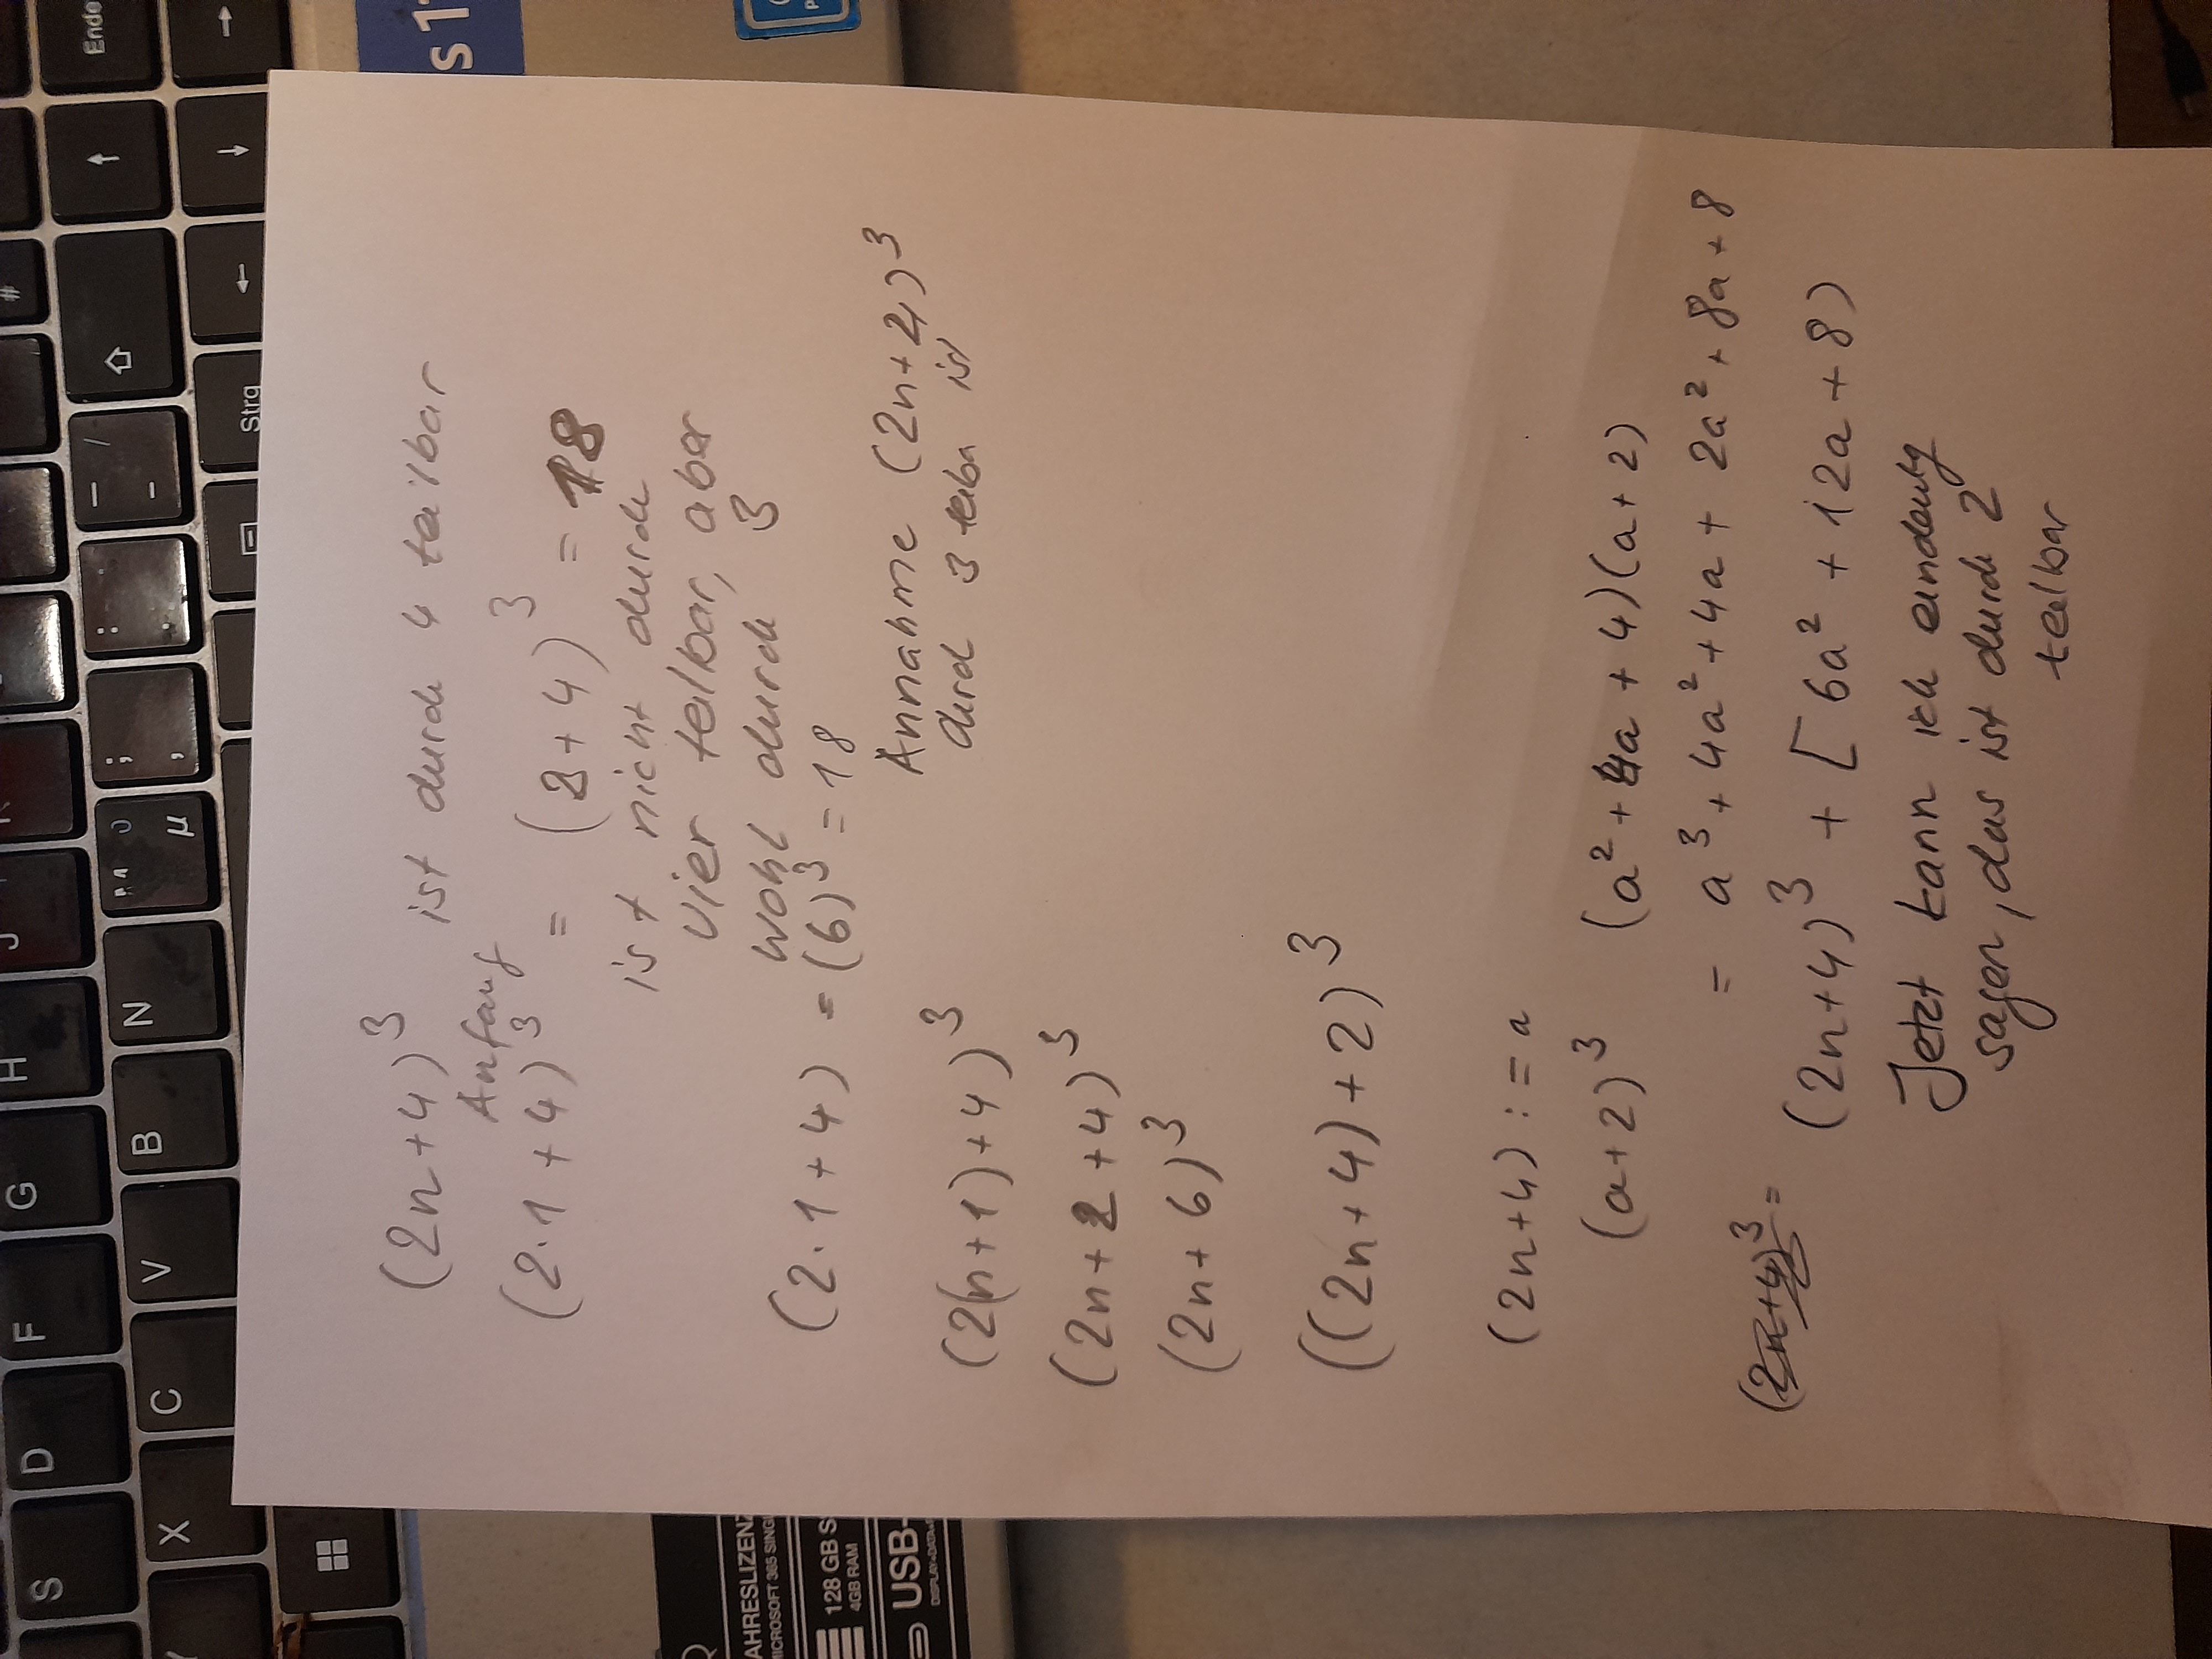 (2n+4)³ ist durch 4 teilbar
Anfang
(2·1+4)³ = (2+4)³ = 18
ist nicht durch
vier teilbar, aber
wohl durch 3
(2·1+4) = (6)³ = 18
Annahme (2n+4)³
durch 3 teilba ist
(2(n+1)+4)³
(2n+2+4)³
(2n+6)³
((2n+4)+2)³
(2n+4) := a
(a+2)³ (a²+4a+4)(a+2)
= a³+4a²+4a+2a²+8a+8
(2n+4)³ =
(2n+4)³ + [6a²+12a+8)
Jetzt kann ich eindeutig
sagen, das ist durch 2
teilbar
Ende
#
Strg
;
,
:
.
_
-
M
µ
N
B
V
C
X
J
H
G
F
D
S
s1
AHRESLIZENZ
MICROSOFT 365 SINGL
128 GB S
4GB RAM
USB-